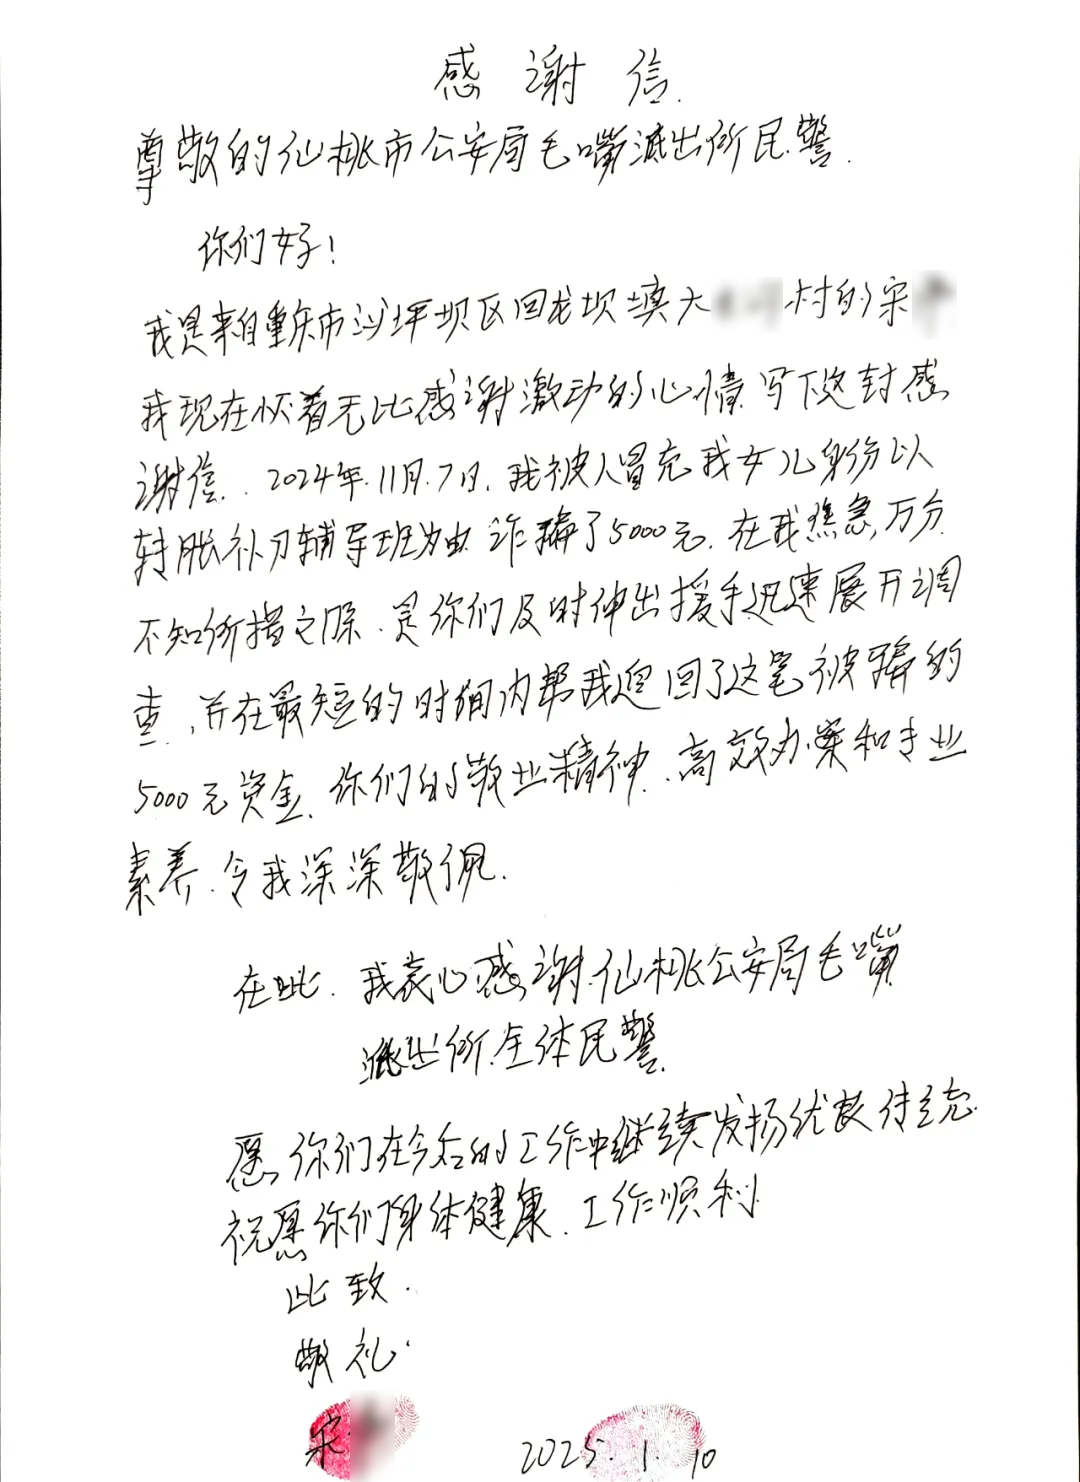 感谢信.
尊敬的仙桃市公安局毛嘴派出所民警.
你们好!
我是来自重庆市沙坪坝区回龙坝填大 村的宋
我现在怀着无比感谢激动的心情写下这封感
谢信. 2024年.11月.7日.我被人冒充我女儿身份以
转账补习辅导班为由.诈骗了5000元.在我焦急,万分
不知所措之际.是你们及时伸出援手迅速展开调
查,并在最短的时间内帮我追回了这笔被骗的
5000元资金.你们的敬业精神.高效办案和专业
素养.令我深深敬佩.
在此.我衷心感谢.仙桃公安局毛嘴
派出所.全体民警.
愿你们在今后的工作中继续发扬优良传统.
祝愿你们身体健康.工作顺利.
此致.
敬礼.
宋 2025.1.10